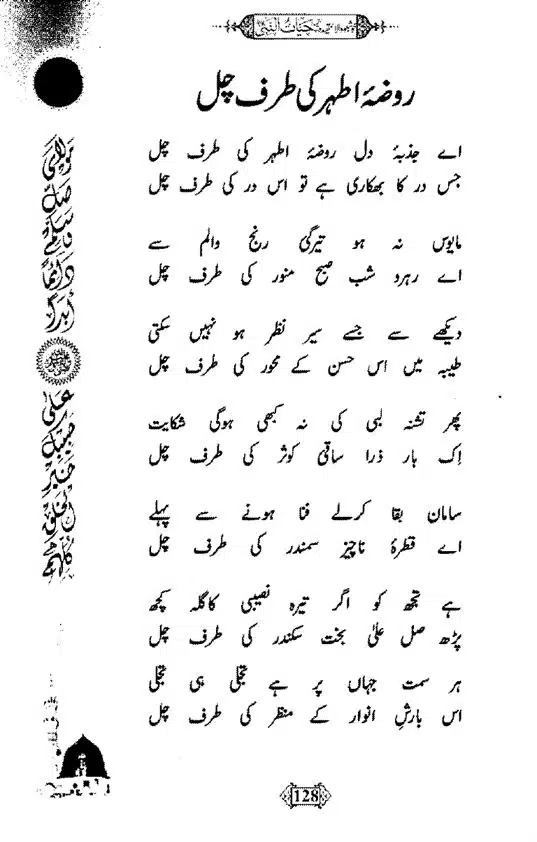 روضۂ اطہر کی طرف چل
اے جذبۂ دل روضۂ اطہر کی طرف چل
جس در کا بھکاری ہے تو اس در کی طرف چل
مایوس نہ ہو تیرگیٔ رنج والم سے
اے رہرو شب صبح منور کی طرف چل
دیکھے سے جسے سیر نظر ہو نہیں سکتی
طیبہ میں اس حسن کے محور کی طرف چل
پھر تشنہ لبی کی نہ کبھی ہوگی شکایت
اِک بار ذرا ساقیٔ کوثر کی طرف چل
سامان بقا کرلے فنا ہونے سے پہلے
اے قطرۂ ناچیز سمندر کی طرف چل
ہے تجھ کو اگر تیرہ نصیبی کا گلہ کچھ
پڑھ صل علیٰ بخت سکندر کی طرف چل
ہر سمت جہاں پر ہے تجلی ہی تجلی
اس بارشِ انوار کے منظر کی طرف چل
مولای
صل
وسلم
دائما
أبدا
على
حبيبك
خير
الخلق
كلهم
128